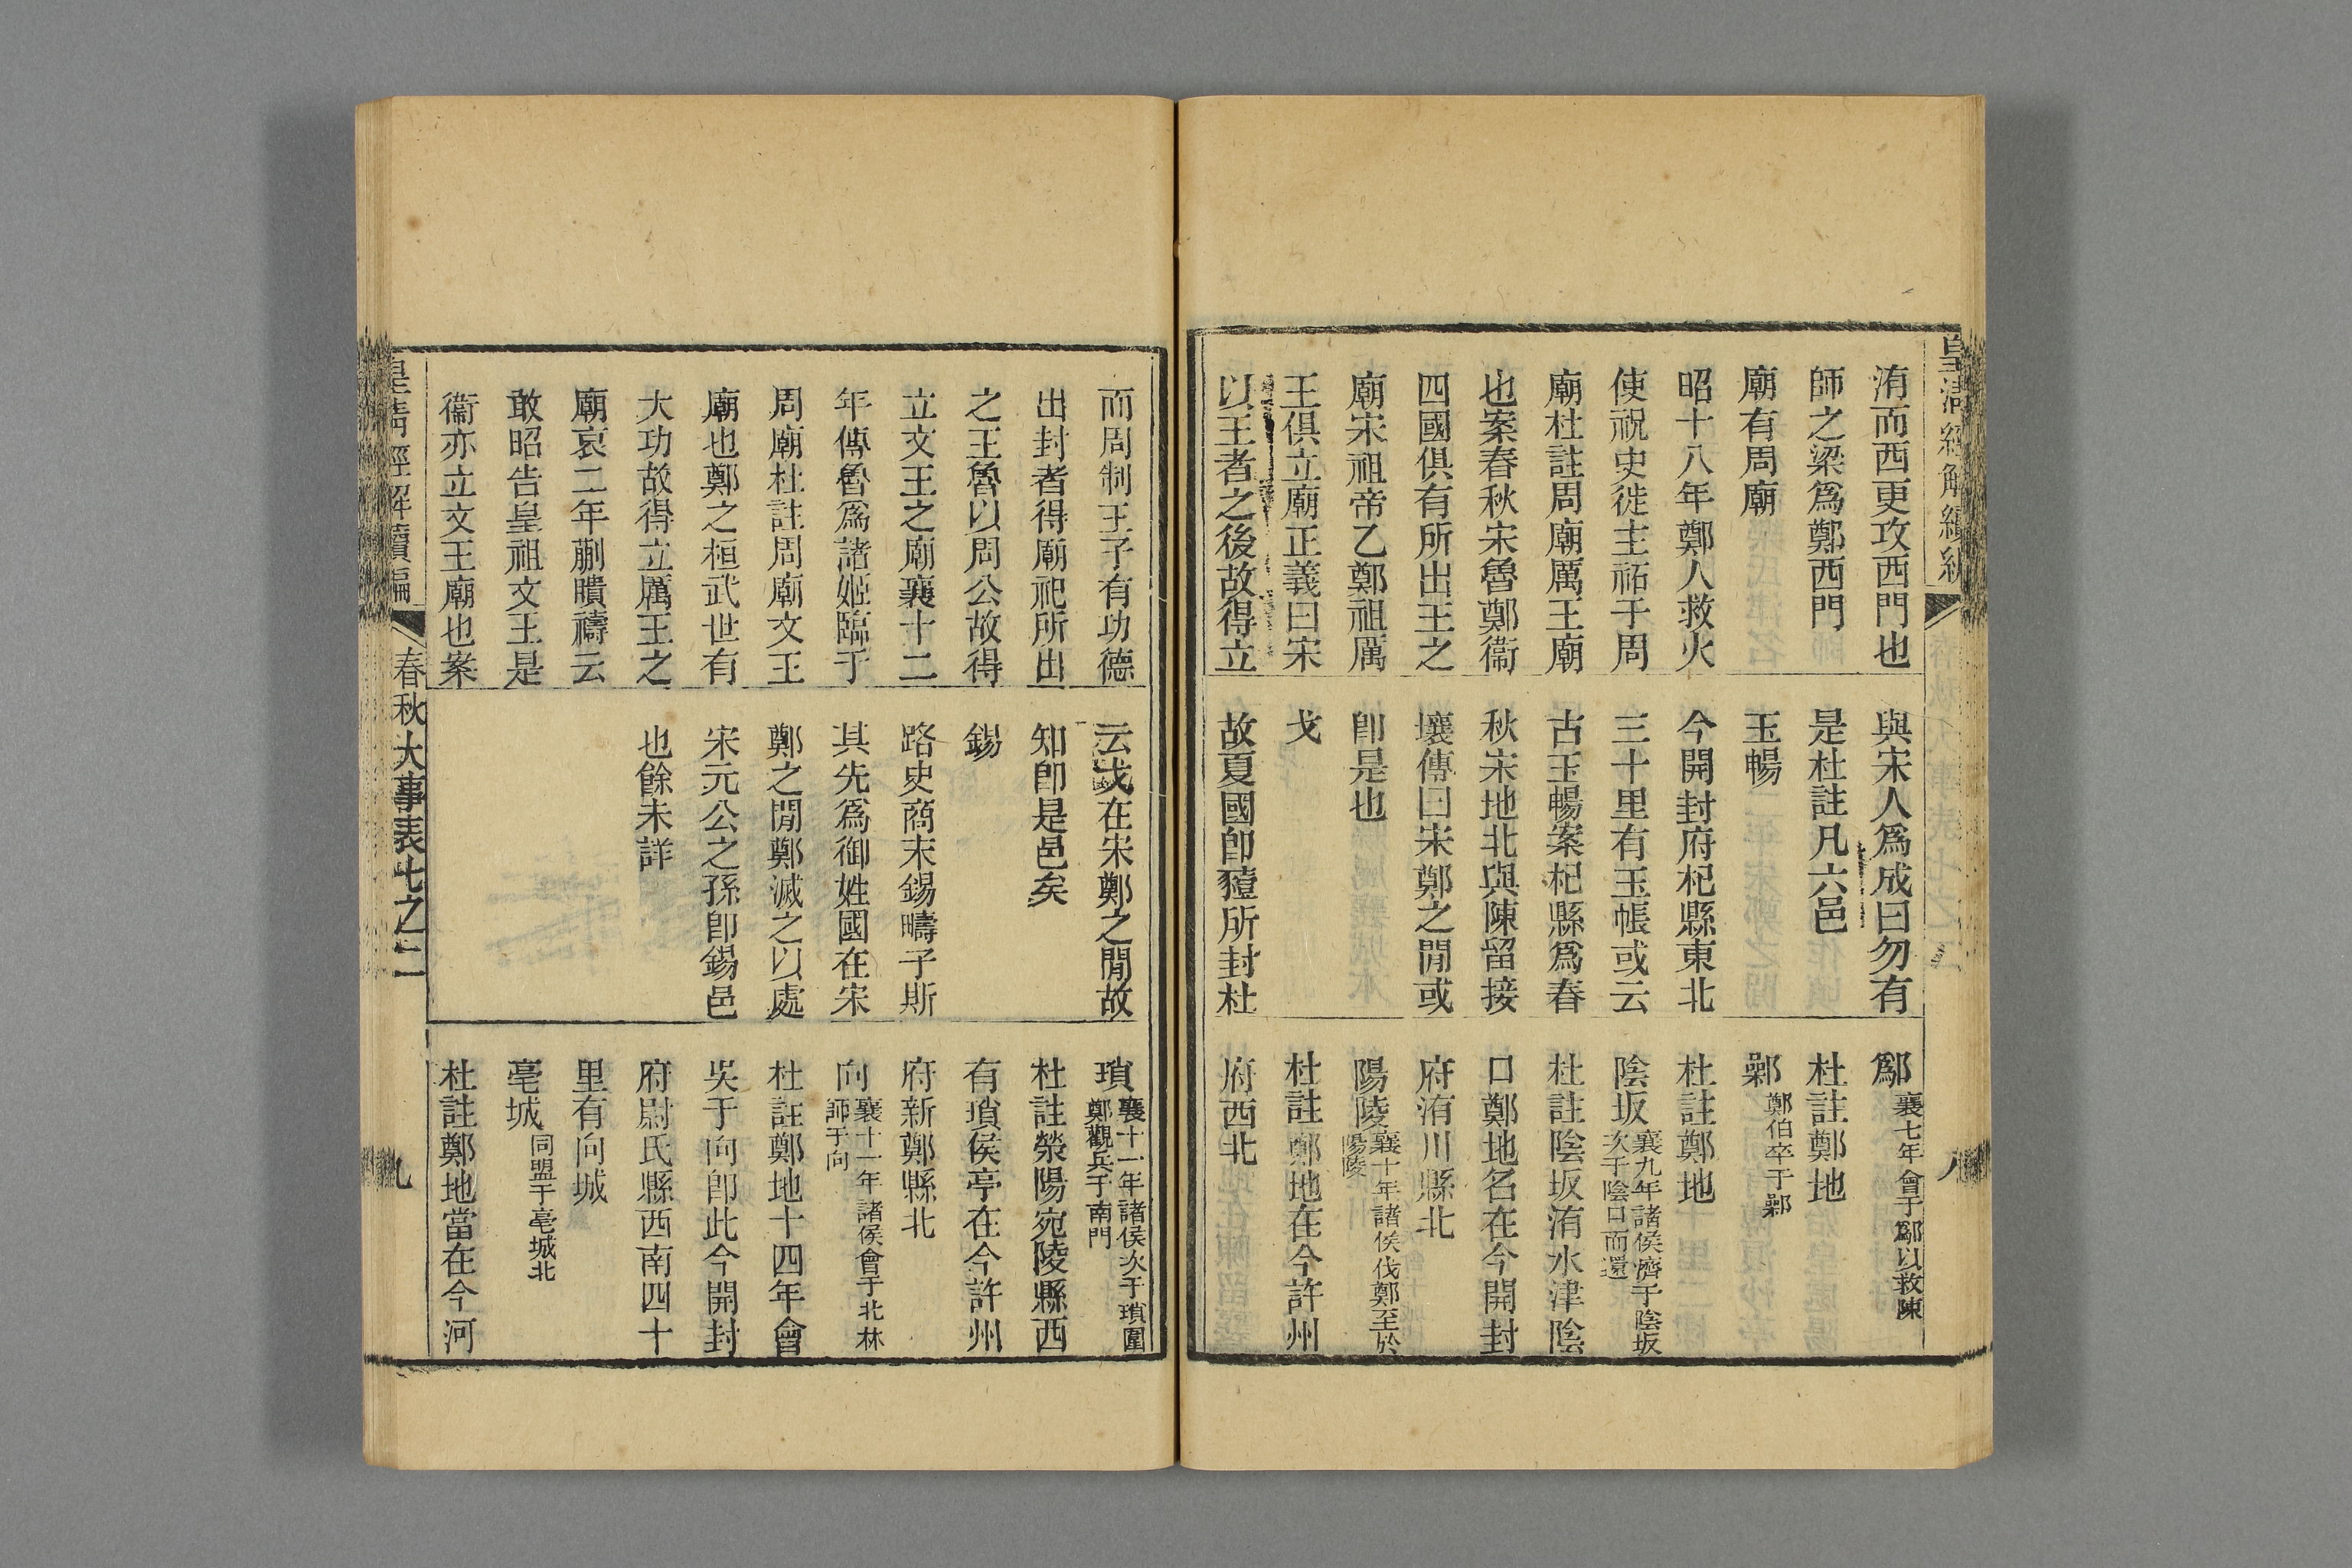 皇清經解續編
八
洧而西更攻西門也
師之梁爲鄭西門
廟有周廟
昭十八年鄭人救火
使祝史徙主祏于周
廟杜註周廟厲王廟
也案春秋宋魯鄭衞
四國俱有所出王之
廟宋祖帝乙鄭祖厲
王俱立廟正義曰宋
以王者之後故得立
與宋人爲成曰勿有
是杜註凡六邑
玉暢
今開封府杞縣東北
三十里有玉帳或云
古玉暢案杞縣爲春
秋宋地北與陳留接
壤傳曰宋鄭之閒或
卽是也
戈
故夏國卽豷所封杜
鄬
襄七年會于鄬以救陳
杜註鄭地
鄵
鄭伯卒于鄵
杜註鄭地
陰坂
襄九年諸侯濟于陰坂
次于陰口而還
杜註陰坂洧水津陰
口鄭地名在今開封
府洧川縣北
陽陵
襄十年諸侯伐鄭至於
陽陵
杜註鄭地在今許州
府西北
而周制王子有功德
出封者得廟祀所出
之王魯以周公故得
立文王之廟襄十二
年傳魯爲諸姬臨于
周廟杜註周廟文王
廟也鄭之桓武世有
大功故得立厲王之
廟哀二年蒯聵禱云
敢昭告皇祖文王是
衞亦立文王廟也案
云戈在宋鄭之閒故
知卽是邑矣
錫
路史商末錫疇子斯
其先爲御姓國在宋
鄭之閒鄭滅之以處
宋元公之孫卽錫邑
也餘未詳
瑣
襄十一年諸侯次于瑣圍
鄭觀兵于南門
杜註滎陽宛陵縣西
有瑣侯亭在今許州
府新鄭縣北
向
襄十一年諸侯會于北林
師于向
杜註鄭地十四年會
吳于向卽此今開封
府尉氏縣西南四十
里有向城
亳城
同盟于亳城北
杜註鄭地當在今河
皇清經解續編
春秋大事表七之二
九